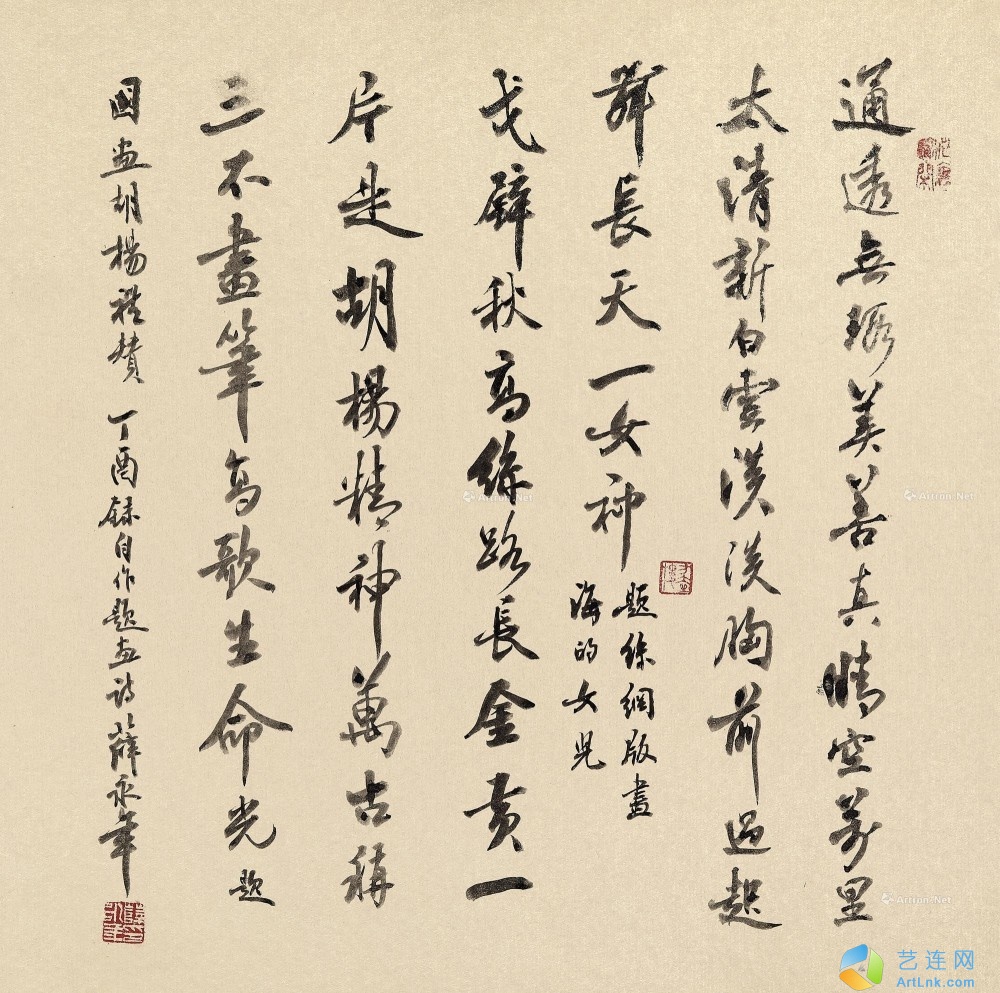 通透無瑕美善真晴空萬里
太清新白雲淡淡胸前過起
舞長天一女神
題絲網版畫
海的女兒
戈壁秋高絲路長金黄一
片是胡楊精神萬古稱
三不畫筆高歌生命光 題
國畫胡楊禮贊 丁酉録自作題畫詩 薛永年
Artron.Net
Artron.Net
Artron.Net
艺连网
ArtLnk.com